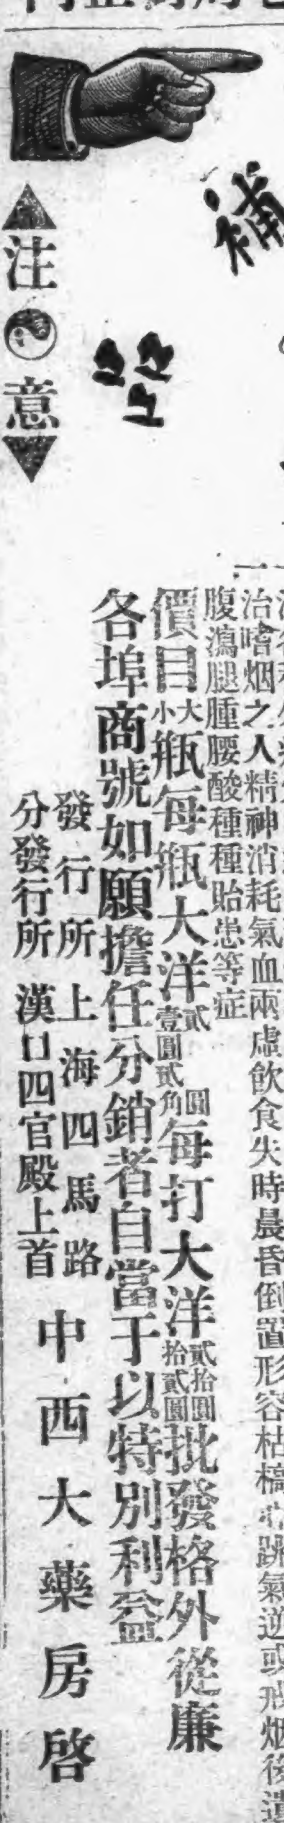 補
治嗜烟之人精神消耗氣血兩虛飲食失時晨昏倒置形容枯槁心跳氣逆或戒烟後遺
腹瀉腿腫腰酸種種貽患等症
價目大小瓶每瓶大洋貳圓壹圓貳角每打大洋貳拾圓拾貳圓批發格外從廉
各埠商號如願擔任分銷者自當于以特別利益
發行所 上海四馬路
分發行所 漢口四官殿上首
中西大藥房啓
注意